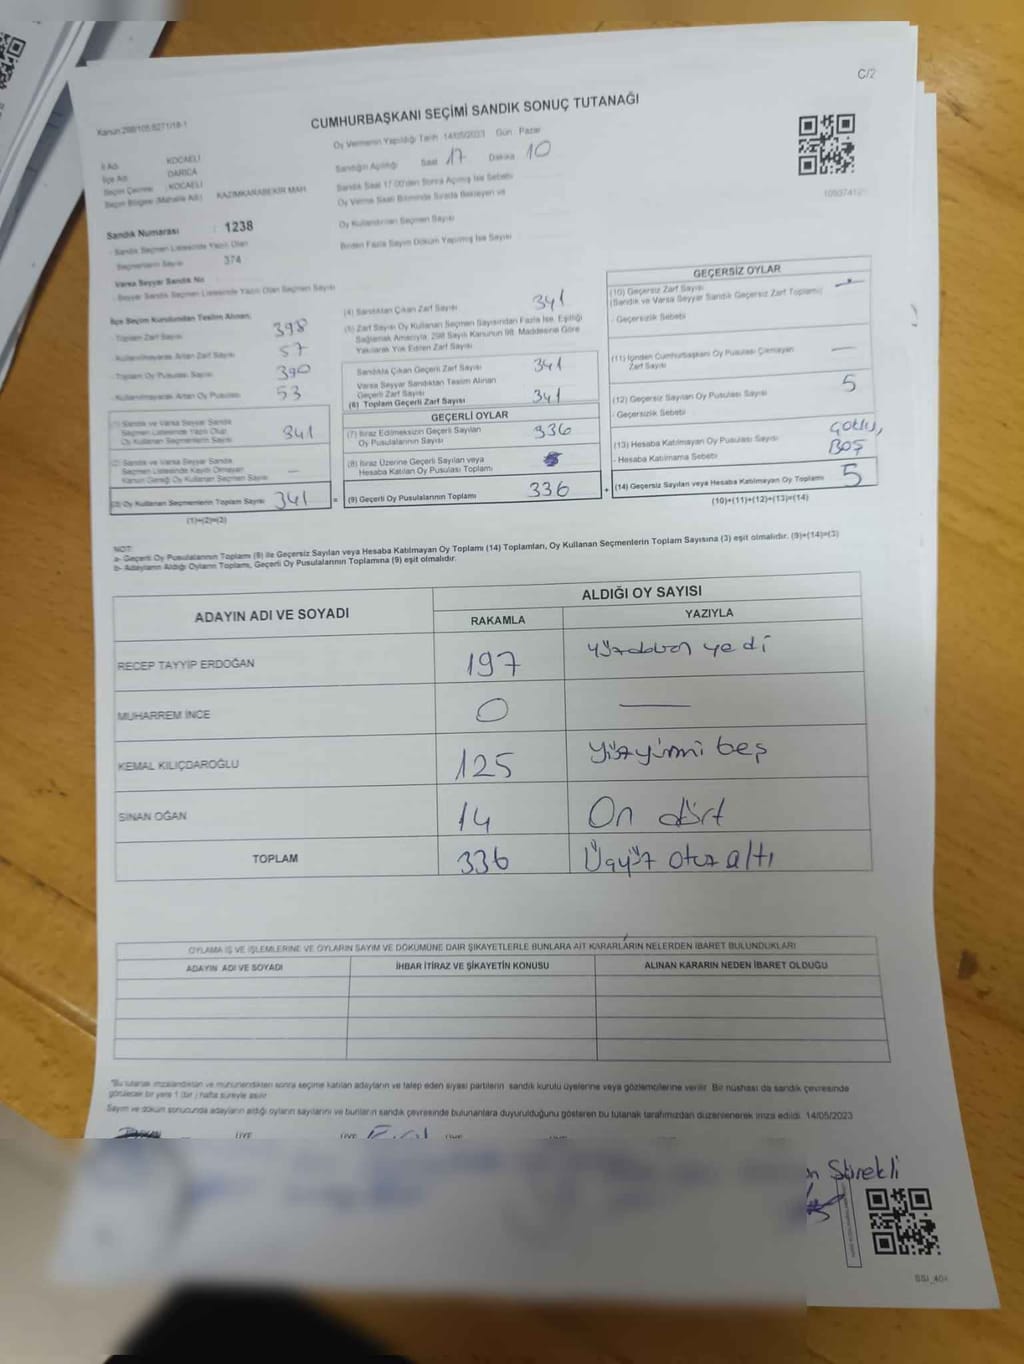 C/2
Kanun:298/105,6271/18-1
CUMHURBAŞKANI SEÇİMİ SANDIK SONUÇ TUTANAĞI
İl Adı KOCAELİ
İlçe Adı DARICA
Seçim Çevresi KOCAELİ
Seçim Bölgesi (Mahalle Adı) KAZIMKARABEKİR MAH.
Sandık Numarası : 1238
- Sandık Seçmen Listesinde Yazılı Olan
Seçmenlerin Sayısı 374
Varsa Seyyar Sandık No
- Seyyar Sandık Seçmen Listesinde Yazılı Olan Seçmen Sayısı
Oy Vermenin Yapıldığı Tarih 14/05/2023 Gün Pazar
Sandığın Açılığı Saat 17 Dakika 10
Sandık Saat 17.00'den Sonra Açılmış İse Sebebi
Oy Verme Saati Bitiminde Sırada Bekleyen ve
Oy Kullandırılan Seçmen Sayısı
Birden Fazla Sayım Döküm Yapılmış İse Sayısı
İlçe Seçim Kurulundan Teslim Alınan;
- Toplam Zarf Sayısı 398
- Kullanılmayarak Artan Zarf Sayısı 57
- Toplam Oy Pusulası Sayısı 390
- Kullanılmayarak Artan Oy Pusulası 53
(1) Sandık ve Varsa Seyyar Sandık
Seçmen Listesinde Yazılı Olup
Oy Kullanan Seçmenlerin Sayısı 341
(2) Sandık ve Varsa Seyyar Sandık
Seçmen Listesinde Kayıtlı Olmayan
Kanun Gereği Oy Kullanan Seçmen Sayısı —
(3) Oy Kullanan Seçmenlerin Toplam Sayısı 341 =
(1)+(2)=(3)
(4) Sandıktan Çıkan Zarf Sayısı 341
(5) Zarf Sayısı Oy Kullanan Seçmen Sayısından Fazla İse, Eşitliği
Sağlamak Amacıyla, 298 Sayılı Kanunun 98. Maddesine Göre
Yakılarak Yok Edilen Zarf Sayısı
Sandıkta Çıkan Geçerli Zarf Sayısı 341
Varsa Seyyar Sandıktan Teslim Alınan
Geçerli Zarf Sayısı
(6) Toplam Geçerli Zarf Sayısı 341
GEÇERLİ OYLAR
(7) İtiraz Edilmeksizin Geçerli Sayılan
Oy Pusulalarının Sayısı 336
(8) İtiraz Üzerine Geçerli Sayılan veya
Hesaba Katılan Oy Pusulası Toplamı
(9) Geçerli Oy Pusulalarının Toplamı 336 +
GEÇERSİZ OYLAR
(10) Geçersiz Zarf Sayısı —
(Sandık ve Varsa Seyyar Sandık Geçersiz Zarf Toplamı)
- Geçersizlik Sebebi
(11) İçinden Cumhurbaşkanı Oy Pusulası Çıkmayan
Zarf Sayısı —
(12) Geçersiz Sayılan Oy Pusulası Sayısı 5
- Geçersizlik Sebebi
(13) Hesaba Katılmayan Oy Pusulası Sayısı
- Hesaba Katılmama Sebebi BOŞ
(14) Geçersiz Sayılan veya Hesaba Katılmayan Oy Toplamı 5
(10)+(11)+(12)+(13)=(14)
NOT:
a- Geçerli Oy Pusulalarının Toplamı (9) ile Geçersiz Sayılan veya Hesaba Katılmayan Oy Toplamı (14) Toplamları, Oy Kullanan Seçmenlerin Toplam Sayısına (3) eşit olmalıdır. (9)+(14)=(3)
b- Adayların Aldığı Oyların Toplamı, Geçerli Oy Pusulalarının Toplamına (9) eşit olmalıdır.
ADAYIN ADI VE SOYADI ALDIĞI OY SAYISI
RAKAMLA YAZIYLA
RECEP TAYYİP ERDOĞAN 197 yüzdoksan yedi
MUHARREM İNCE 0 —
KEMAL KILIÇDAROĞLU 125 yüzyirmi beş
SİNAN OĞAN 14 On dört
TOPLAM 336 Üçyüz otuz altı
OYLAMA İŞ VE İŞLEMLERİNE VE OYLARIN SAYIM VE DÖKÜMÜNE DAİR ŞİKAYETLERLE BUNLARA AİT KARARLARIN NELERDEN İBARET BULUNDUKLARI
ADAYIN ADI VE SOYADI İHBAR İTİRAZ VE ŞİKAYETİN KONUSU ALINAN KARARIN NEDEN İBARET OLDUĞU
*Bu tutanak imzalandıktan ve mühürlendikten sonra seçime katılan adayların ve talep eden siyasi partilerin sandık kurulu üyelerine veya gözlemcilerine verilir. Bir nüshası da sandık çevresinde
görülecek bir yere 1 (bir) hafta süreyle asılır.
Sayım ve döküm sonucunda adayların aldığı oyların sayılarını ve bunların sandık çevresinde bulunanlara duyurulduğunu gösteren bu tutanak tarafımızdan düzenlenerek imza edildi. 14/05/2023
BAŞKAN ÜYE ÜYE ÜYE
Sürekli